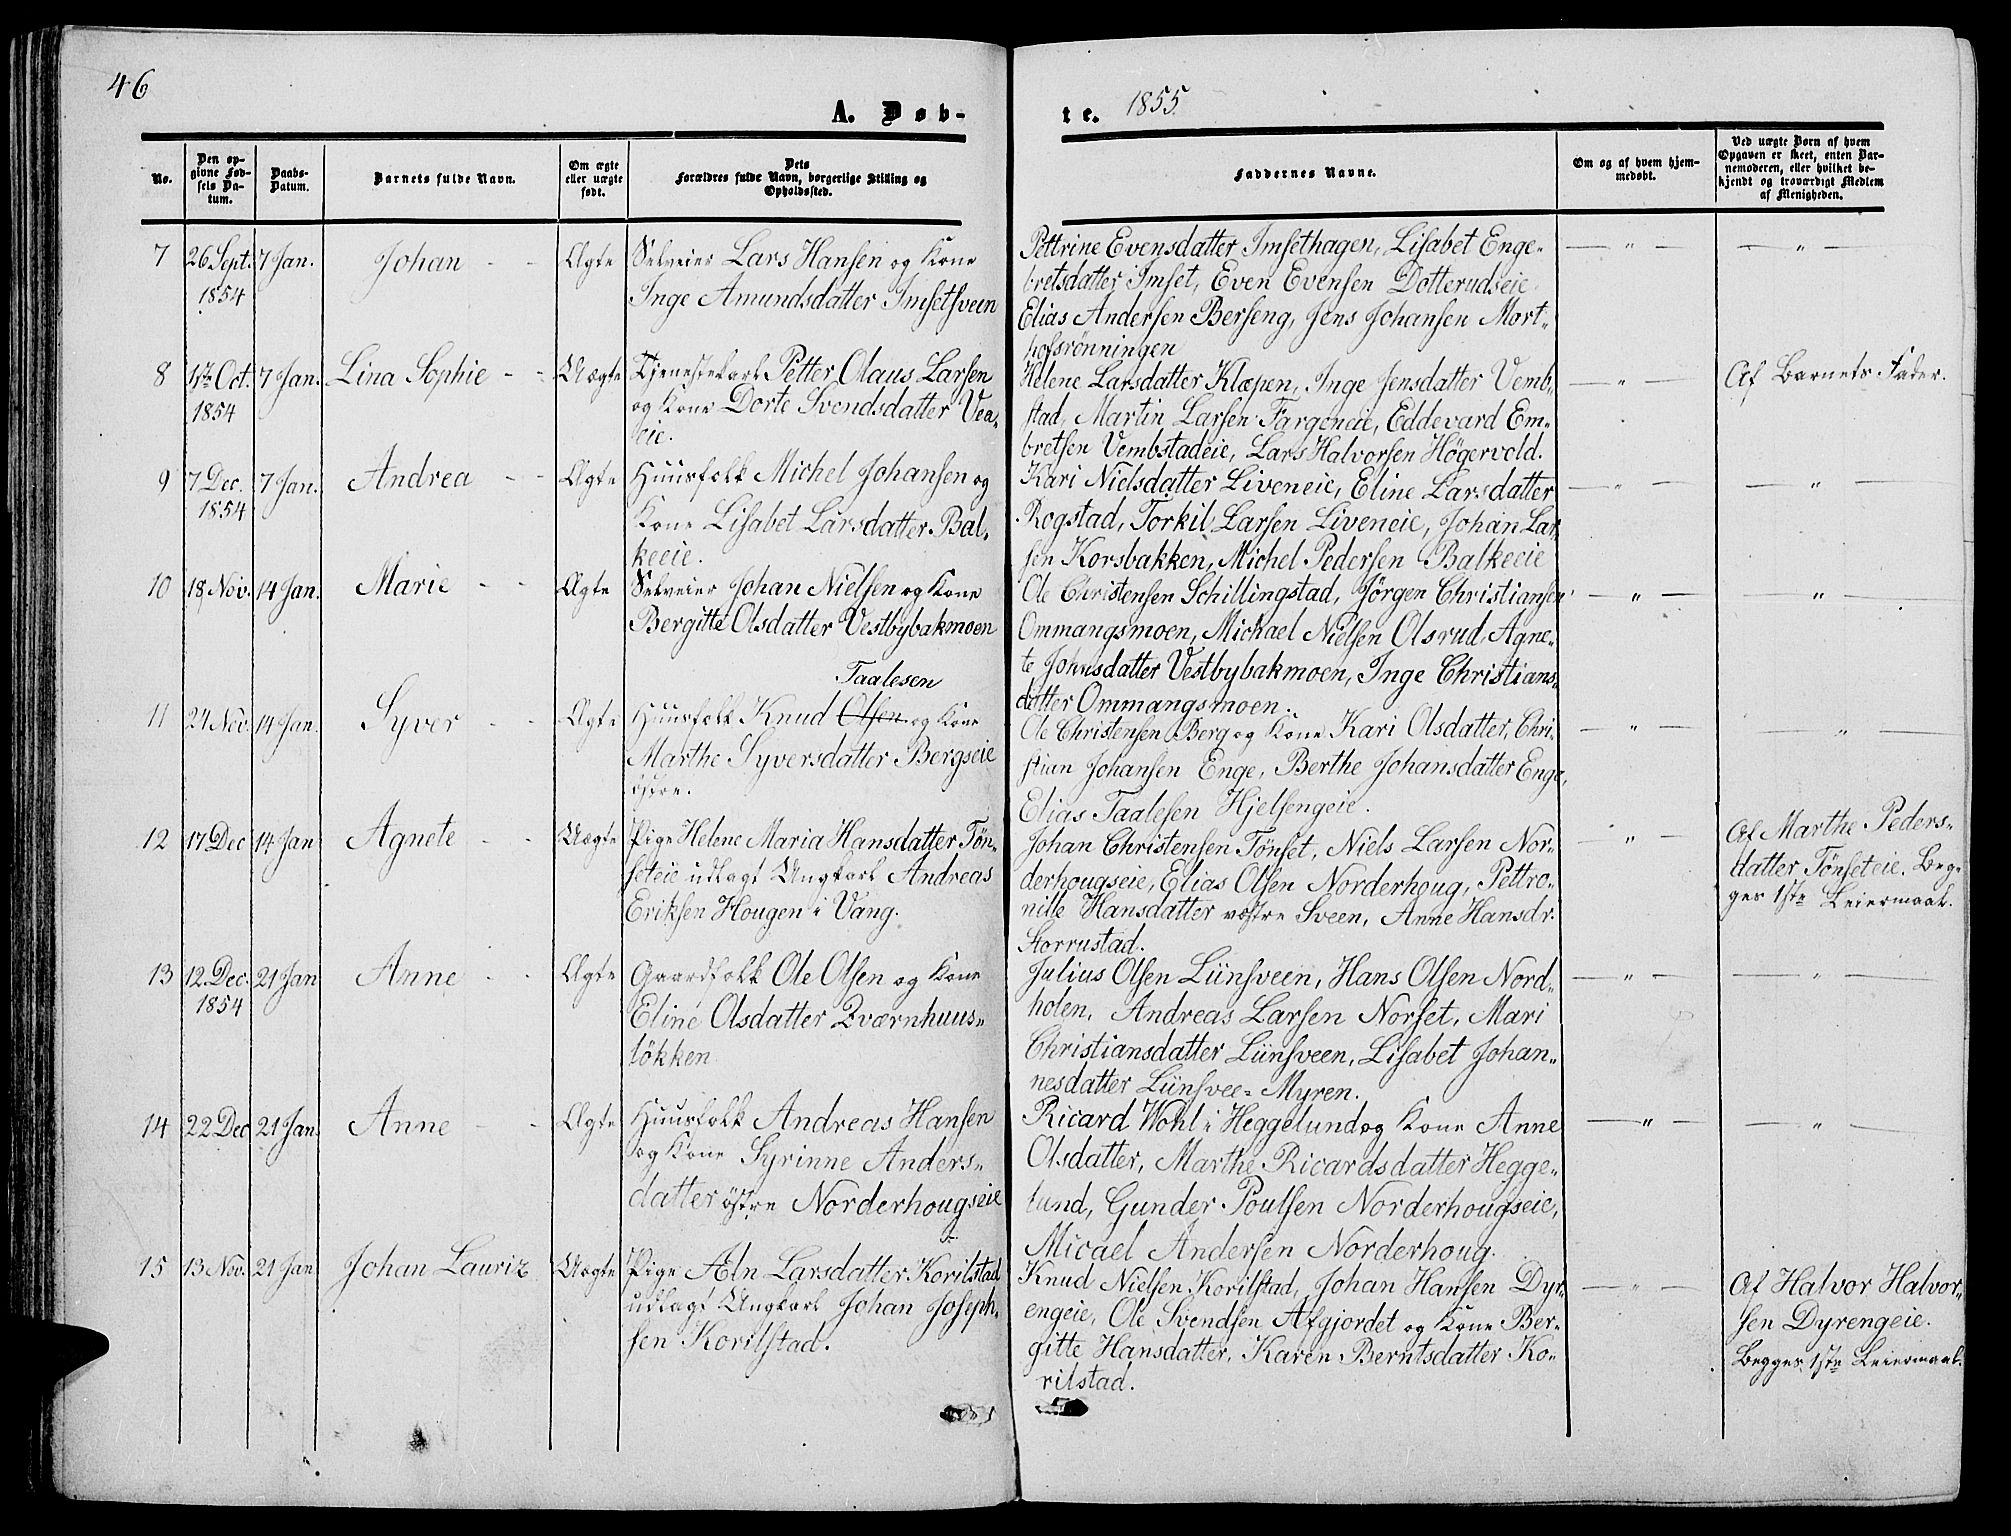 46
A. Døb-
te. 1855.
No.
Den op-
givne Fød-
sels Da-
tum.
Daabs-
Datum.
Barnets fulde Navn.
Om ægte
eller uægte
født.
Dets
Forældres fulde Navn, borgerlige Stilling og
Opholdssted.
Faddernes Navne.
Om og af hvem hjem-
medøbt.
Ved uægte Børn af hvem
Opgaven er skeet, enten Bar-
nemoderen, eller hvilket be-
kjendt og troværdigt Medlem
af Menigheden.
7
26 Sept.
1854
7 Jan.
Johan
Ægte
Selveier Lars Hansen og Kone
Inge Amundsdatter Imsetsveen
Pettrine Evensdatter Imsethagen, Lisabet Enge-
bretsdatter Imset, Even Evensen Dotterudseie
Elias Andersen Berseng, Jens Johansen Mort-
hofsrønningen
8
1ste Oct.
1854
7 Jan.
Lina Sophie
Uægte
Tjenestekarl Petter Olaus Larsen
og Kone Dorte Svendsdatter Vea-
eie.
Helene Larsdatter Klæpen, Inge Jensdatter Vemb-
stad, Martin Larsen Fargeneie, Eddevard Em-
bretsen Vembstadeie, Lars Halvorsen Högervold.
Af Barnets Fader.
9
7 Dec.
1854
7 Jan.
Andrea
Ægte
Huusfolk Michel Johansen og
Kone Lisabet Larsdatter Bal-
keeie.
Kari Nielsdatter Liveneie, Eline Larsdatter
Rogstad, Torkil Larsen Liveneie, Johan Lar-
sen Korsbakken, Michel Pedersen Balkeeie
10
18 Nov.
14 Jan.
Marie
Ægte
Selveier Johan Nielsen og Kone
Bergitte Olsdatter Vestbybakmoen
Ole Christensen Schillingstad, Jörgen Christiansen
Ommangsmoen, Michael Nielsen Olsrud, Agne-
te Johnsdatter Vestbybakmoen, Inge Christians-
datter Ommangsmoen.
11
24 Nov.
14 Jan.
Syver
Ægte
Taalesen
Huusfolk Knud Olsen og Kone
Marthe Syversdatter Bergseie
østre.
Ole Christensen Berg og Kone Kari Olsdatter, Chri-
stian Johansen Enge, Berthe Johansdatter Enge,
Elias Taalesen Hjelsengeie.
12
17 Dec
14 Jan
Agnete
Uægte
Pige Helene Maria Hansdatter Tøn-
seteie udlagt Ungkarl Andreas
Eriksen Hougen i Vang.
Johan Christensen Tönset, Niels Larsen Nor-
derhougseie, Elias Olsen Norderhoug, Pettro-
nille Hansdatter vestre Sveen, Anne Hansdr.
Storrustad.
Af Marthe Peders-
datter Tönseteie. Beg-
ges 1ste Leiermaal.
13
12 Dec.
1854
21 Jan
Anne
Ægte
Gaardfolk Ole Olsen og Kone
Eline Olsdatter Qværnhuus-
løkken
Julius Olsen Lünsveen, Hans Olsen Nord-
holen, Andreas Larsen Norset, Mari
Christiansdatter Lünsveen, Lisabet Johan-
nesdatter Lünsvee-Myren.
14
22 Dec
21 Jan.
Anne
Ægte
Huusfolk Andreas Hansen
og Kone Syrinne Anders-
datter østre Norderhougseie
Ricard Wohl i Heggelund og Kone Anne
Olsdatter, Marthe Ricardsdatter Hegge-
lund, Gunder Poulsen Norderhougseie,
Micael Andersen Norderhoug.
15
13 Nov.
21 Jan
Johan Lauriz
Uægte
Pige Aln Larsdatter Korilstad
udlagt Ungkarl Johan Joseph-
sen Korilstad.
Knud Nielsen Korilstad, Johan Hansen Dyr-
engeie, Ole Svendsen Afgjordet og Kone Ber-
gitte Hansdatter, Karen Berntsdatter Ko-
rilstad.
Af Halvor Halvor-
sen Dyrengeie.
Begges 1ste Leiermaal.